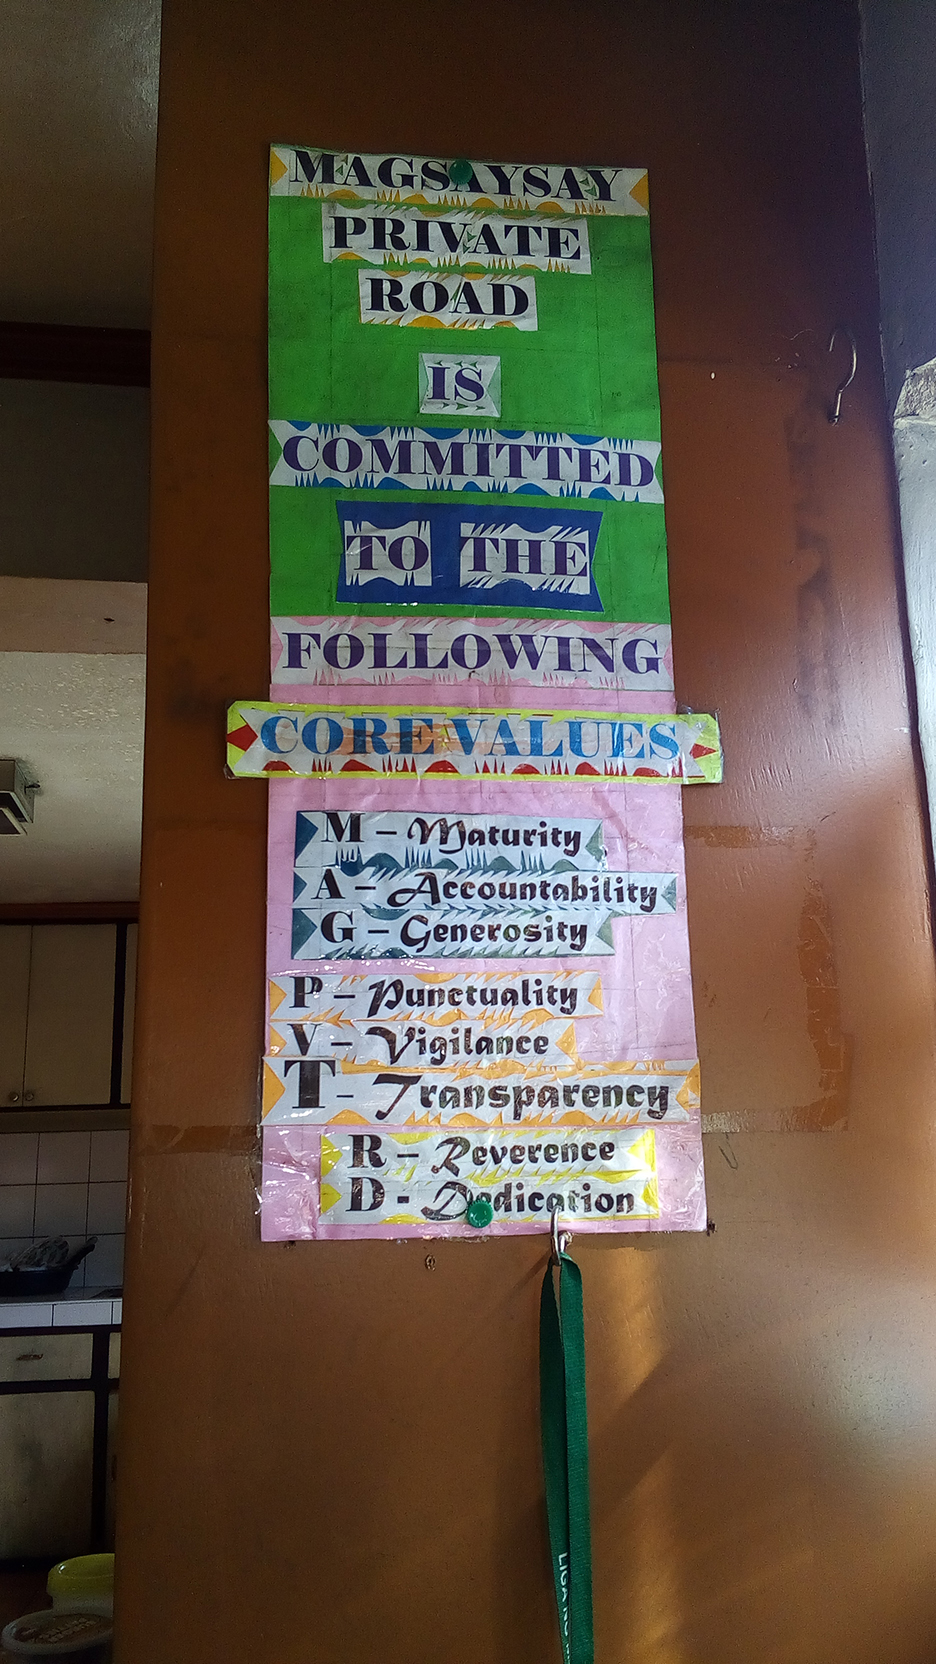 MAGSAYSAY
PRIVATE
ROAD
IS
COMMITTED
TO THE
FOLLOWING
CORE VALUES
M – Maturity
A – Accountability
G – Generosity
P – Punctuality
V – Vigilance
T - Transparency
R – Reverence
D - Dedication
LIGA